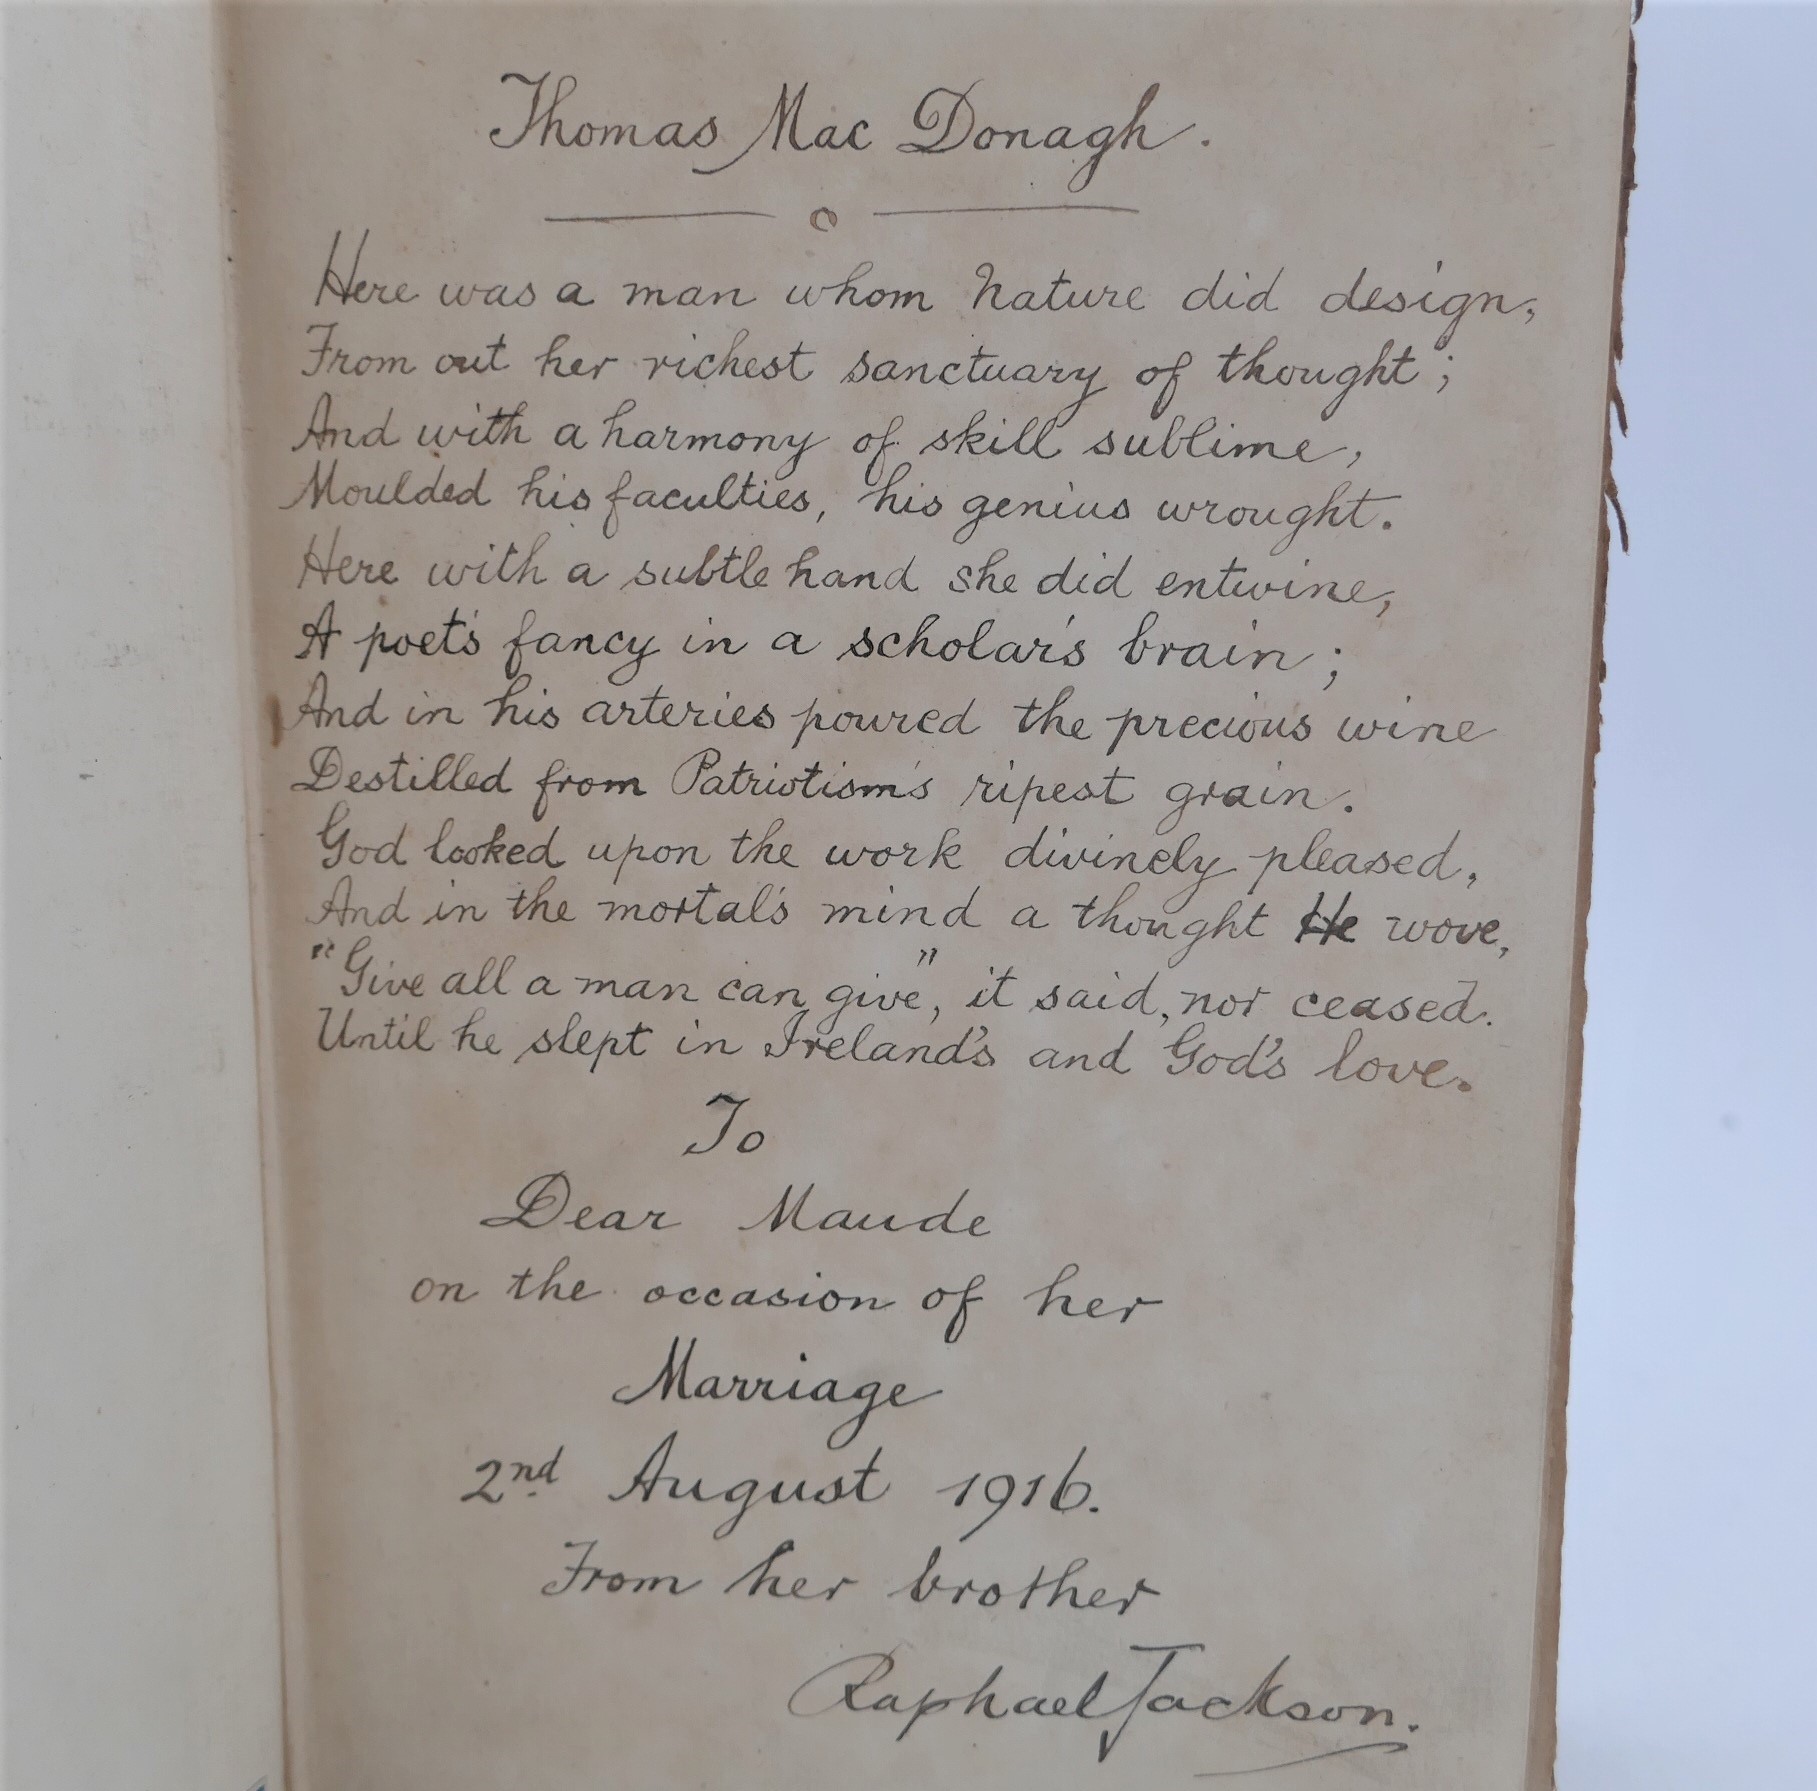 Thomas Mac Donagh.
Here was a man whom Nature did design,
From out her richest sanctuary of thought;
And with a harmony of skill sublime,
Moulded his faculties, his genius wrought.
Here with a subtle hand she did entwine,
A poet's fancy in a scholar's brain;
And in his arteries poured the precious wine
Destilled from Patriotism's ripest grain.
God looked upon the work divinely pleased,
And in the mortal's mind a thought He wove,
"Give all a man can give", it said, nor ceased.
Until he slept in Ireland's and God's love.
To
Dear Maude
on the occasion of her
Marriage
2nd August 1916.
From her brother
Raphael Jackson.